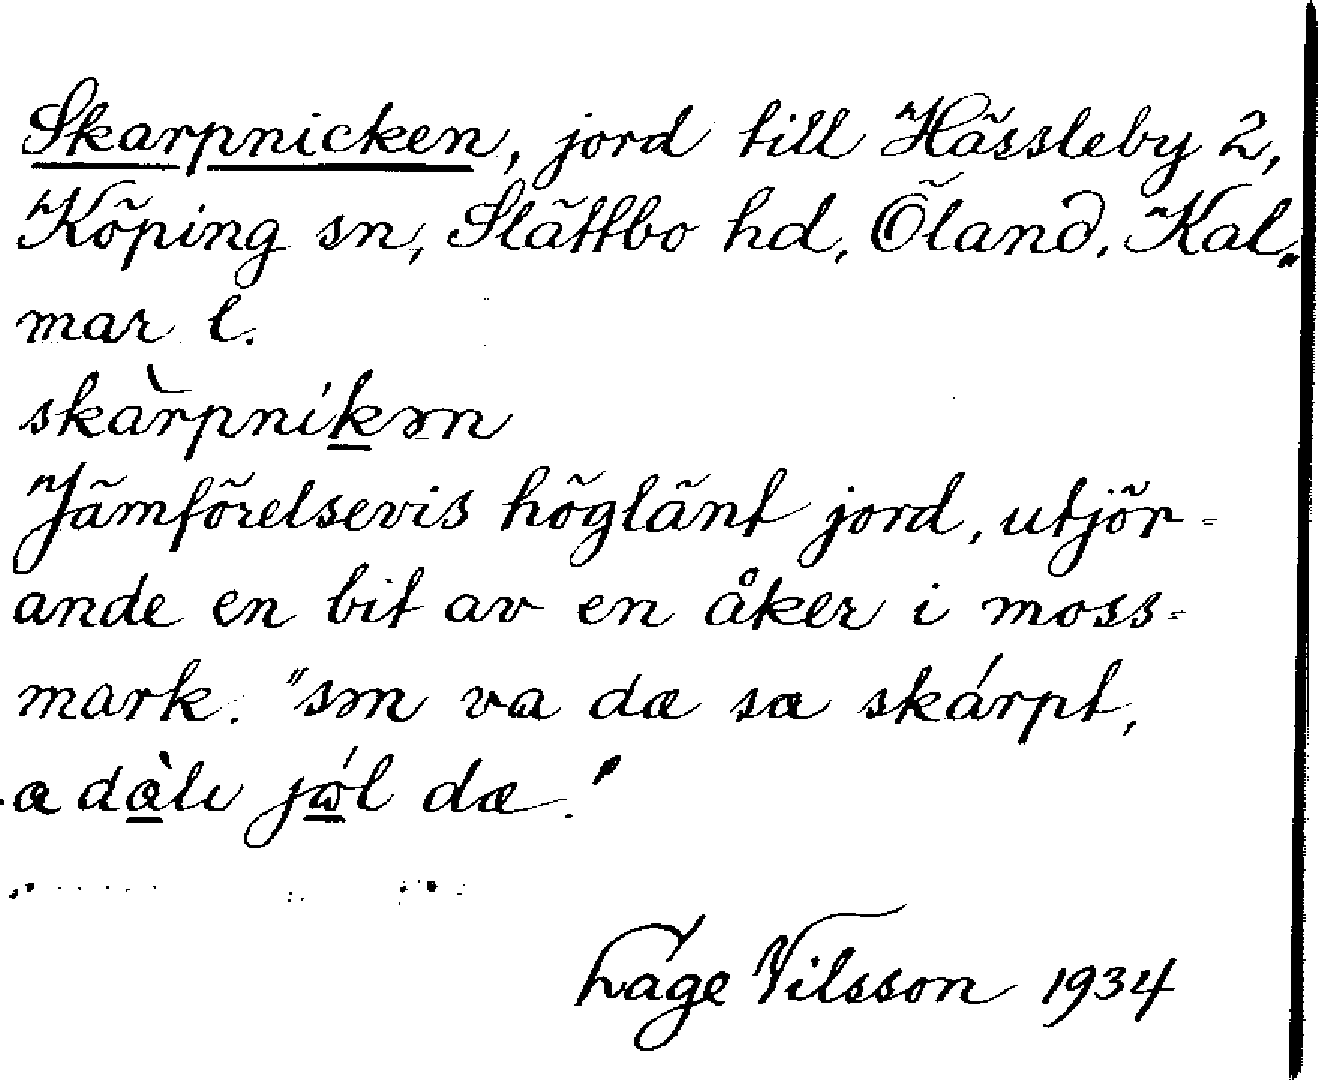 Skarpnicken, jord till Hässleby 2,
Köping sn, Slättbo hd, Öland. Kal-
mar l.
skàrpníkən
Jämförelsevis höglänt jord, utjör-
ande en bit av en åker i moss-
mark. "sən va dæ sə skárpt,
a dàlɩ jál dæ."
Lage Nilsson 1934